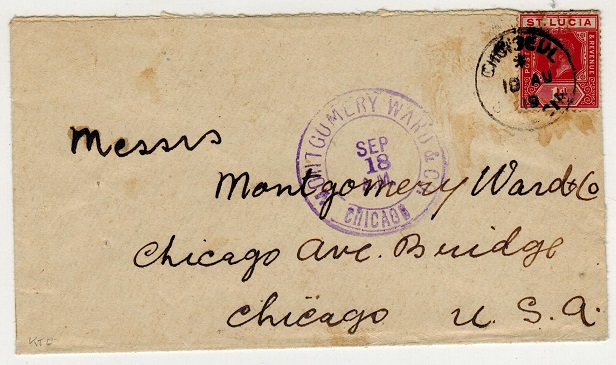 ST. LUCIA
& REVENUE
CHOISEUL
*
AU
19
MONTGOMERY WARD & CO.
SEP
18
A.M.
CHICAGO
Messrs
Montgomery Ward & Co
Chicago Ave. Bridge
Chicago U. S. A.